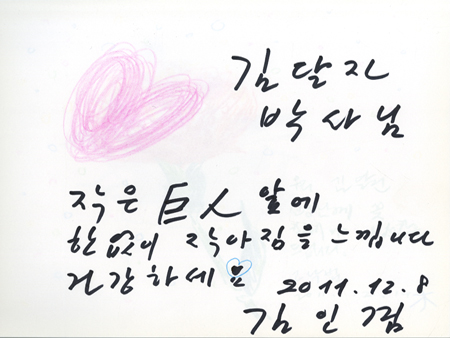 김달자
박사님
작은 巨人 앞에
한없이 작아짐을 느낍니다
건강하세요
2011.12.8
김인겸